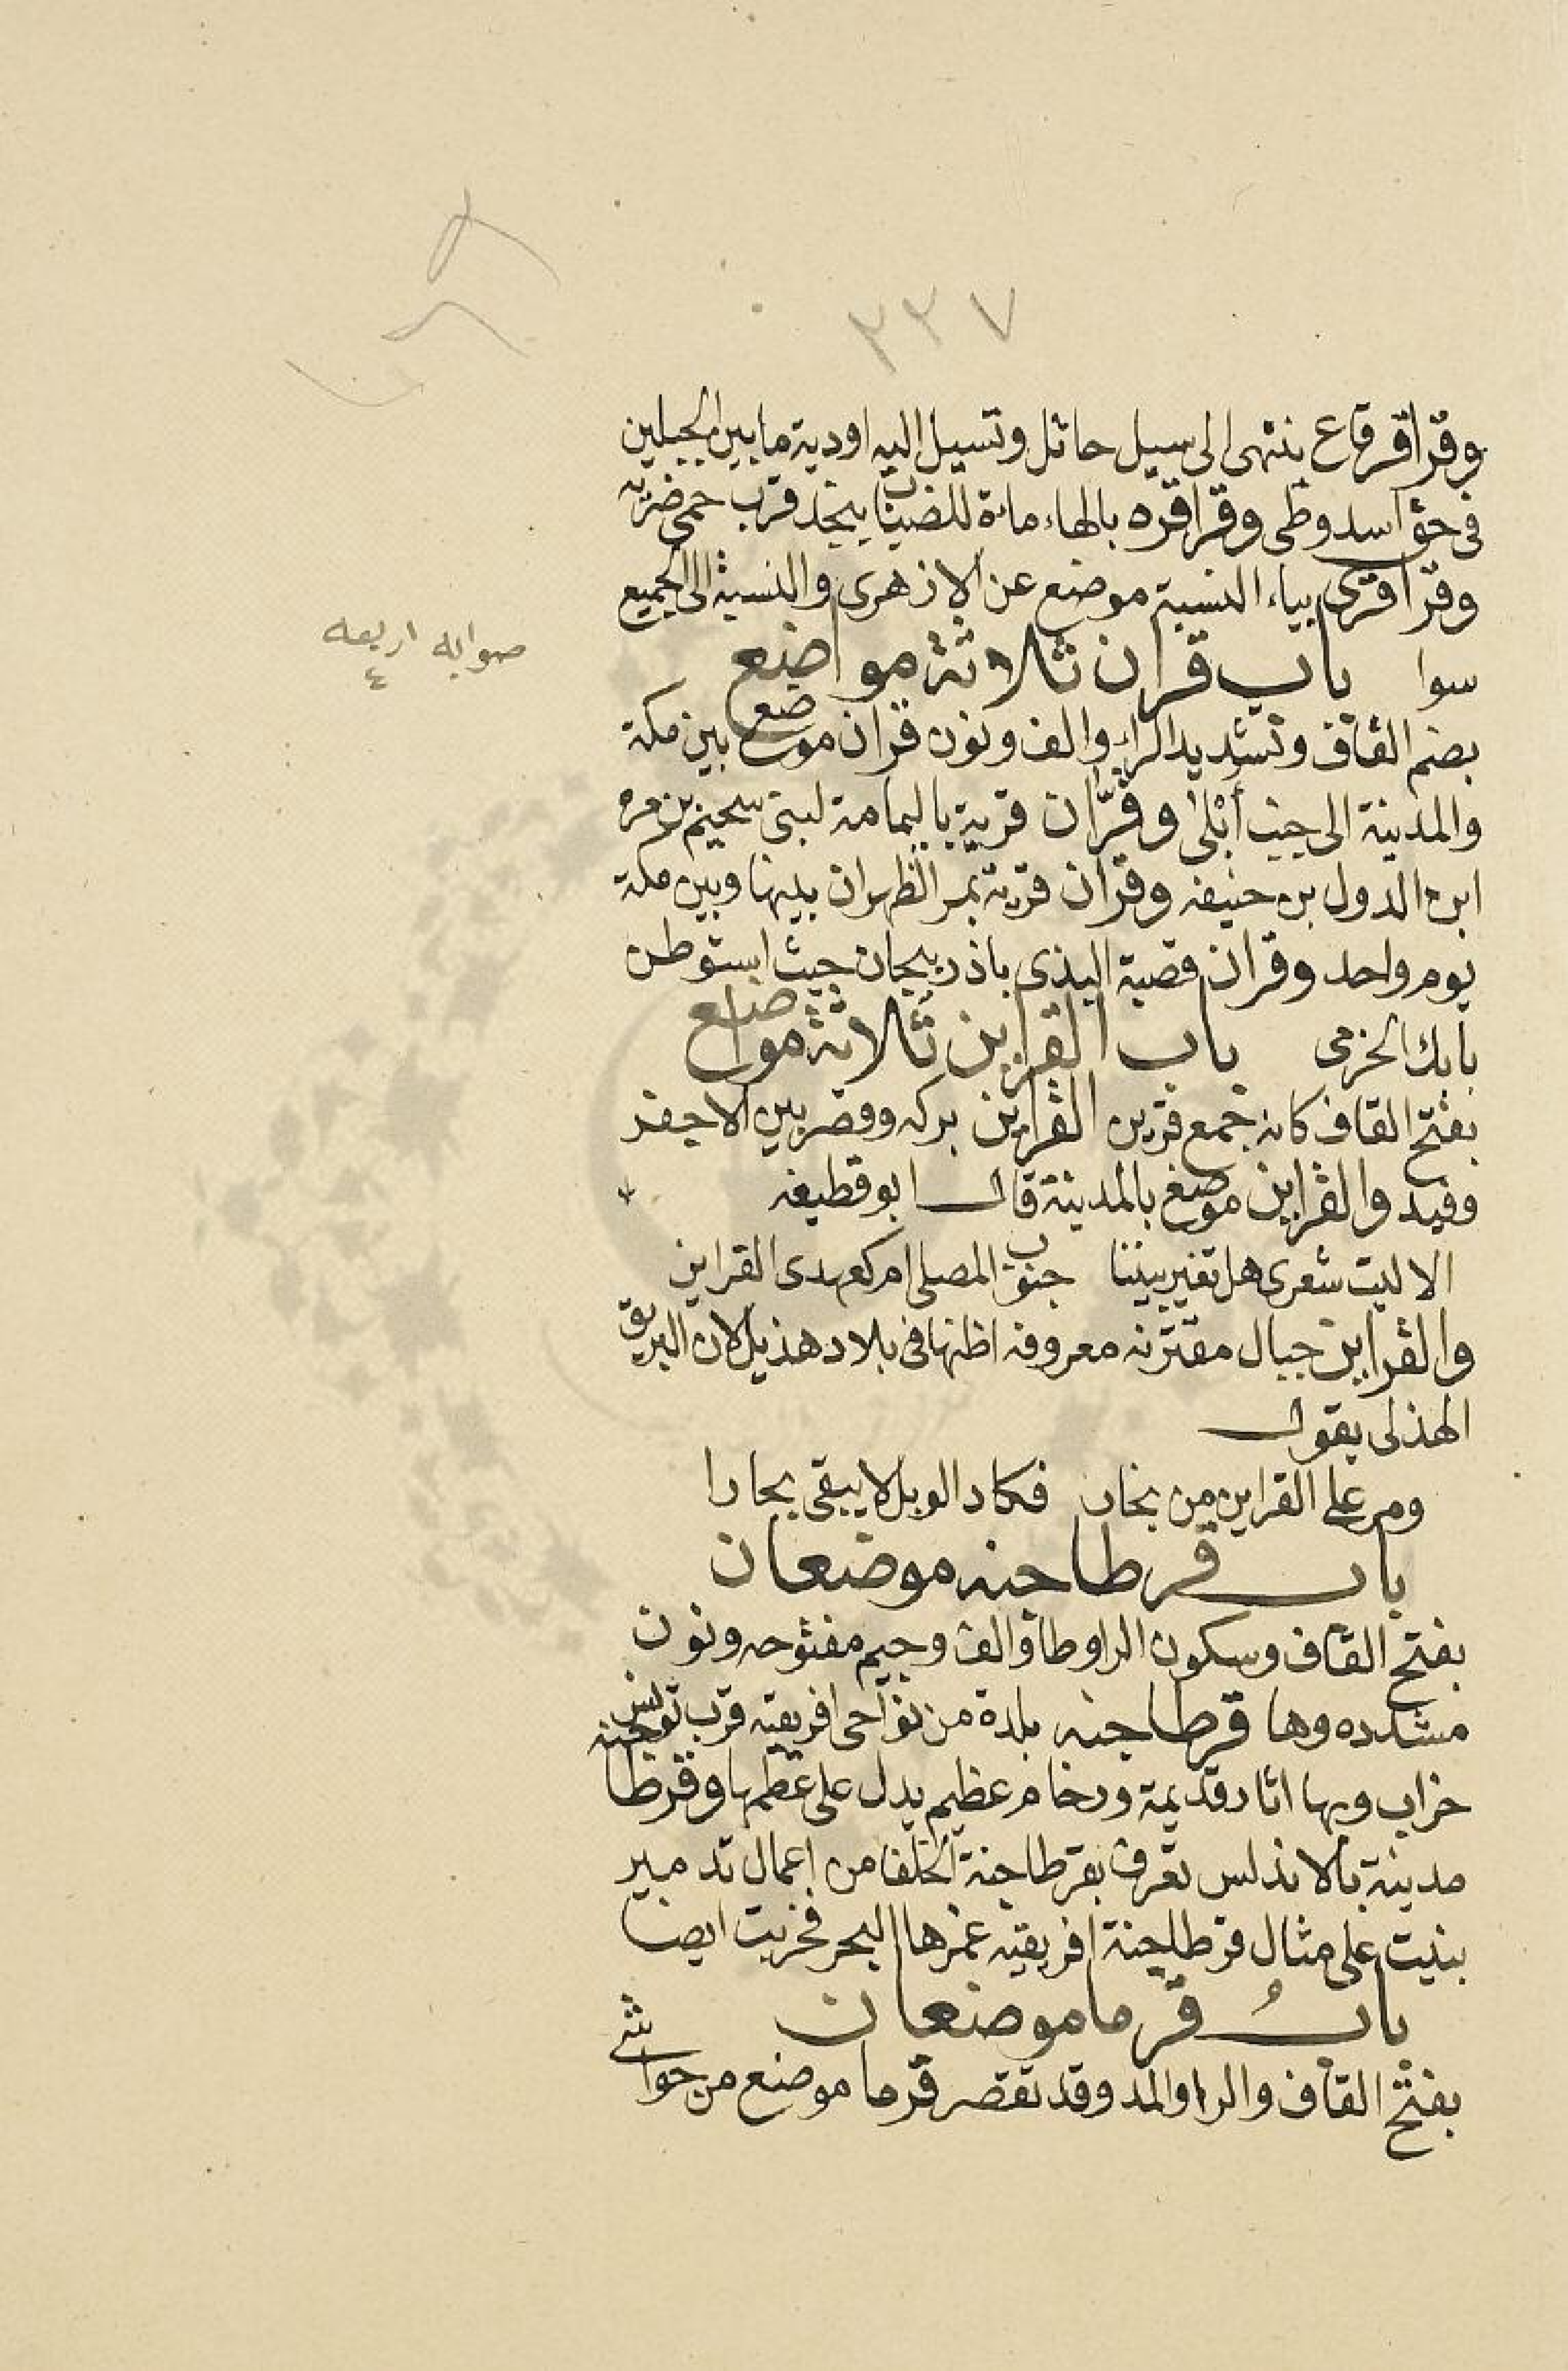 ٣٣٧
وقراقر قاع ينتهى الى سيل حائل وتسيل اليه اودية ما بين الجبلين
فى حق اسد وطى وقراقره بالهاء ماءة للضباب بنجد قرب حمى ضريه
وقراقرى بياء النسبة موضع عن الازهرى والنسبة الى الجميع
سوا باب قران ثلاثة مواضع
صوابه اربعه ٤
بضم القاف وتشديد الراء والف ونون قران موضع بين مكة
والمدينة الى جنب أبْلى وقُرّان قرية باليمامة لبنى سحيم بن مره
ابن الدول بن حنيفه وقران قرية بمر الظهران بينها وبين مكة
يوم واحد وقران قصبة البذى باذربيجان حيث استوطن
بابك الخرمى باب القراين ثلاثة مواضع
بفتح القاف كانه جمع قرين القراين بركه وقصر بين الاجفر
وفيد والقراين موضع بالمدينة قال ابو قطيفه
الا ليت شعرى هل تغير بيننا جنوب المصلى ام كعهدى القراين
والقراين جبال مقترنه معروفه اظنها فى بلاد هذيل لان البريق
الهذلى يقول
ومر على القراين من بحار فكاد الوبل لا يبقى بحارا
باب قرطاجنه موضعان
بفتح القاف وسكون الرا وطا والف وجيم مفتوحه ونون
مشدده وها قرطاجنه بلدة من نواحى افريقيه قرب تونس
خراب وبها اثار قديمة ورخام عظيم يدل على عظمها وقرطاجنه
مدينة بالاندلس تعرف بقرطاجنة الخلفا من اعمال تدمير
بنيت على مثال قرطاجنة افريقيه غمرها البحر فخربت ايضا
بابُ قرما موضعان
بفتح القاف والرا والمد وقد تقصر قرما موضع من حواشى